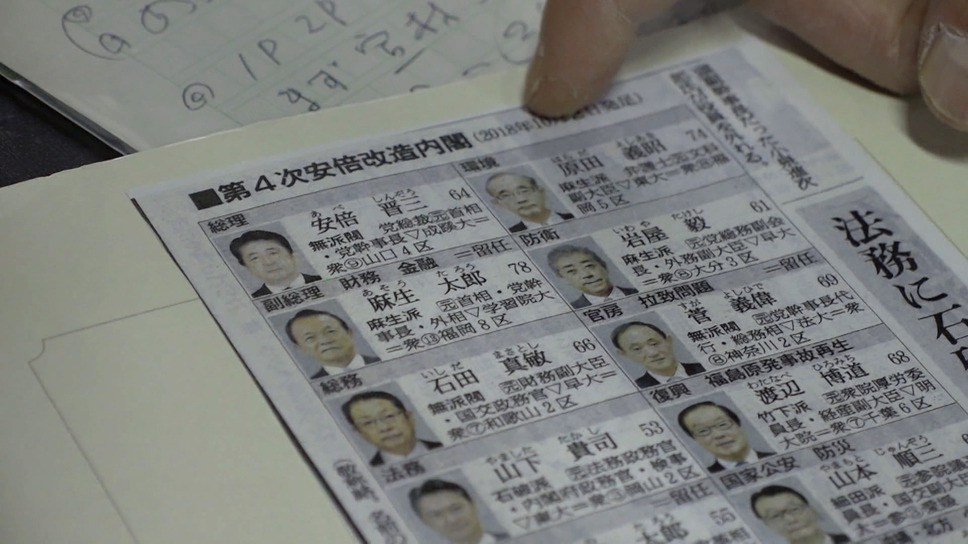 1P 2P
まず
■第4次安倍改造内閣
総理
あべ しんぞう
安倍 晋三 64
無派閥 党総裁・元首相
・党幹事長▽成蹊大＝
衆⑨山口4区
副総理 財務 金融 ＝留任
あそう たろう
麻生 太郎 78
麻生派 元首相・党幹
事長・外相▽学習院大
＝衆⑬福岡8区
総務
いしだ まさとし
石田 真敏 66
無派閥 元財務副大臣
・国交政務官▽早大＝
衆⑦和歌山2区
法務
やました たかし
山下 貴司 53
石破派 元法務政務官
・内閣府政務官・検事
▽東大＝衆③岡山2区
＝留任
太郎 55
環境
はらだ よしあき
原田 義昭 74
麻生派 弁護士・元文科
岡5区
防衛
いわや たけし
岩屋 毅 61
麻生派 元党総務副会
長・外務副大臣▽早大
＝衆⑧大分3区
官房 拉致問題 ＝留任
すが よしひで
菅 義偉 69
無派閥 元党幹事長代
行・総務相▽法大＝衆
⑧神奈川2区
復興 福島原発事故再生
わたなべ ひろみち
渡辺 博道 68
竹下派 元衆院厚労委
員長・経産副大臣▽明
大院＝衆⑦千葉6区
国家公安 防災
やまもと じゅんぞう
山本 順三
細田派 元参院議
員長・国交副大
法務に石